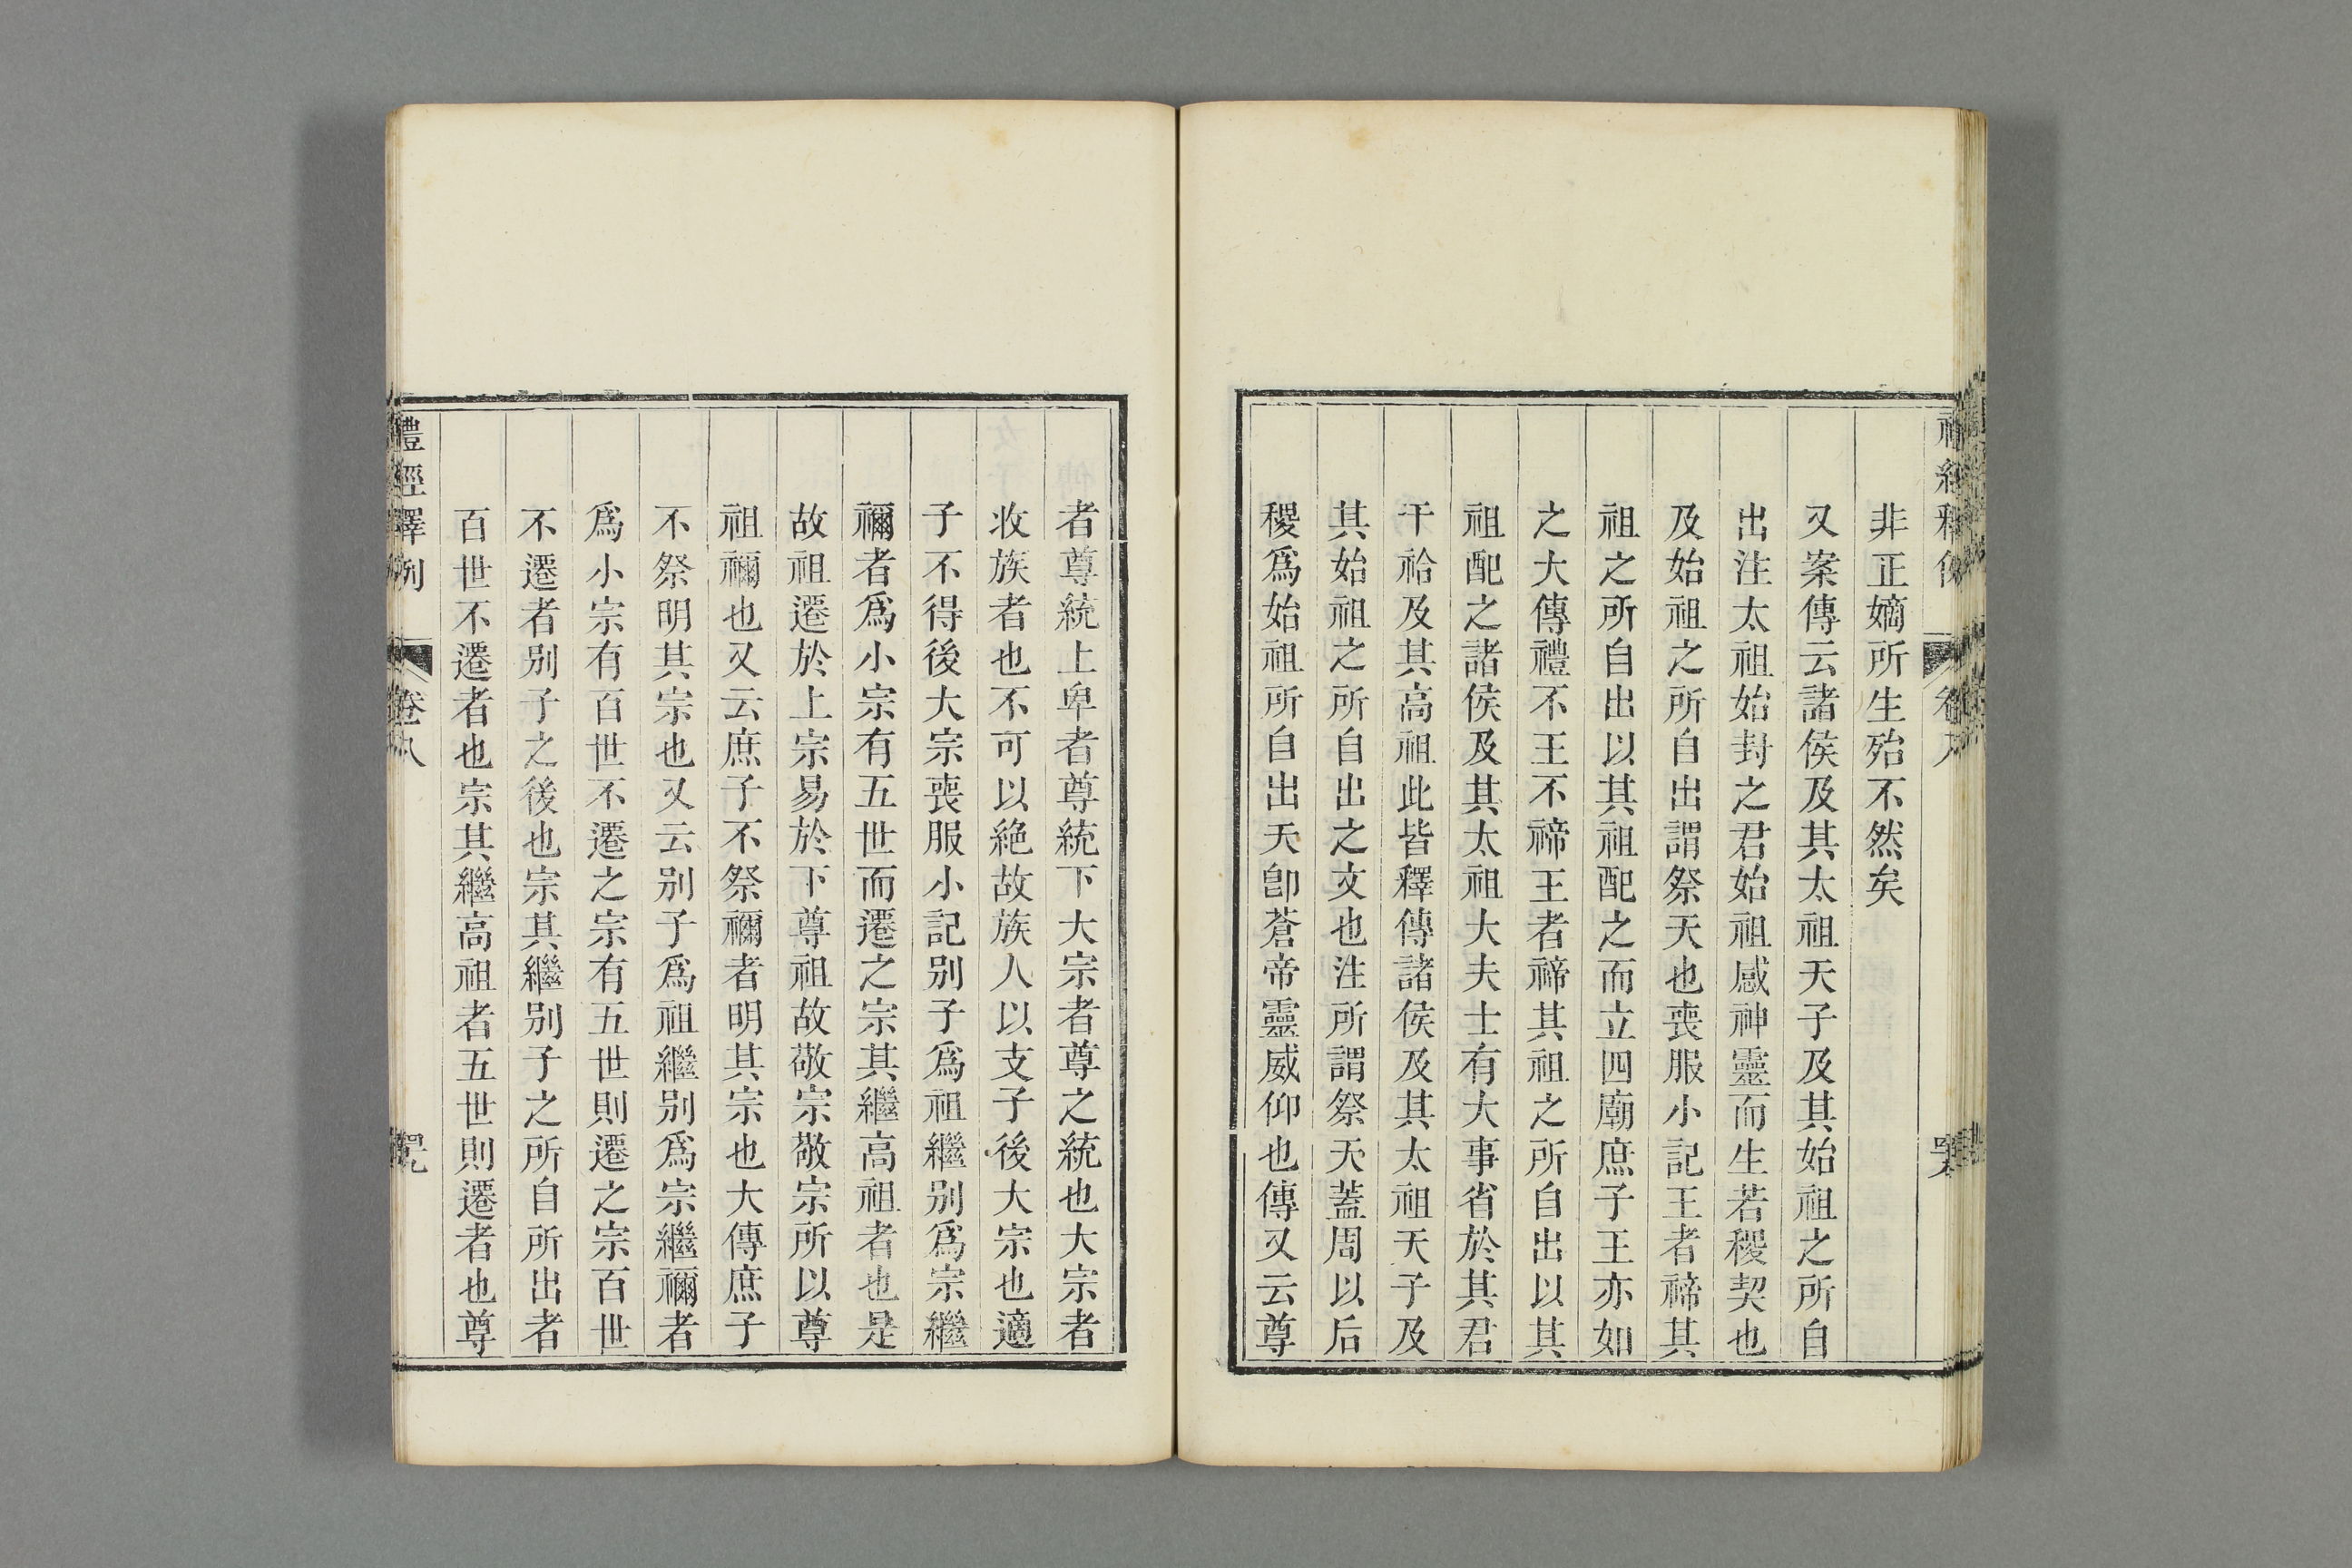 非正嫡所生殆不然矣
又案傳云諸侯及其太祖天子及其始祖之所自
出注太祖始封之君始祖感神靈而生若稷契也
及始祖之所自出謂祭天也喪服小記王者禘其
祖之所自出以其祖配之而立四廟庶子王亦如
之大傳禮不王不禘王者禘其祖之所自出以其
祖配之諸侯及其太祖大夫士有大事省於其君
干祫及其高祖此皆釋傳諸侯及其太祖天子及
其始祖之所自出之文也注所謂祭天蓋周以后
稷爲始祖所自出天卽蒼帝靈威仰也傳又云尊
者尊統上卑者尊統下大宗者尊之統也大宗者
收族者也不可以絶故族人以支子後大宗也適
子不得後大宗喪服小記别子爲祖繼别爲宗繼
禰者爲小宗有五世而遷之宗其繼高祖者也是
故祖遷於上宗易於下尊祖故敬宗敬宗所以尊
祖禰也又云庶子不祭禰者明其宗也大傳庶子
不祭明其宗也又云别子爲祖繼别爲宗繼禰者
爲小宗有百世不遷之宗有五世則遷之宗百世
不遷者别子之後也宗其繼别子之所自所出者
百世不遷者也宗其繼高祖者五世則遷者也尊
禮經釋例
卷八